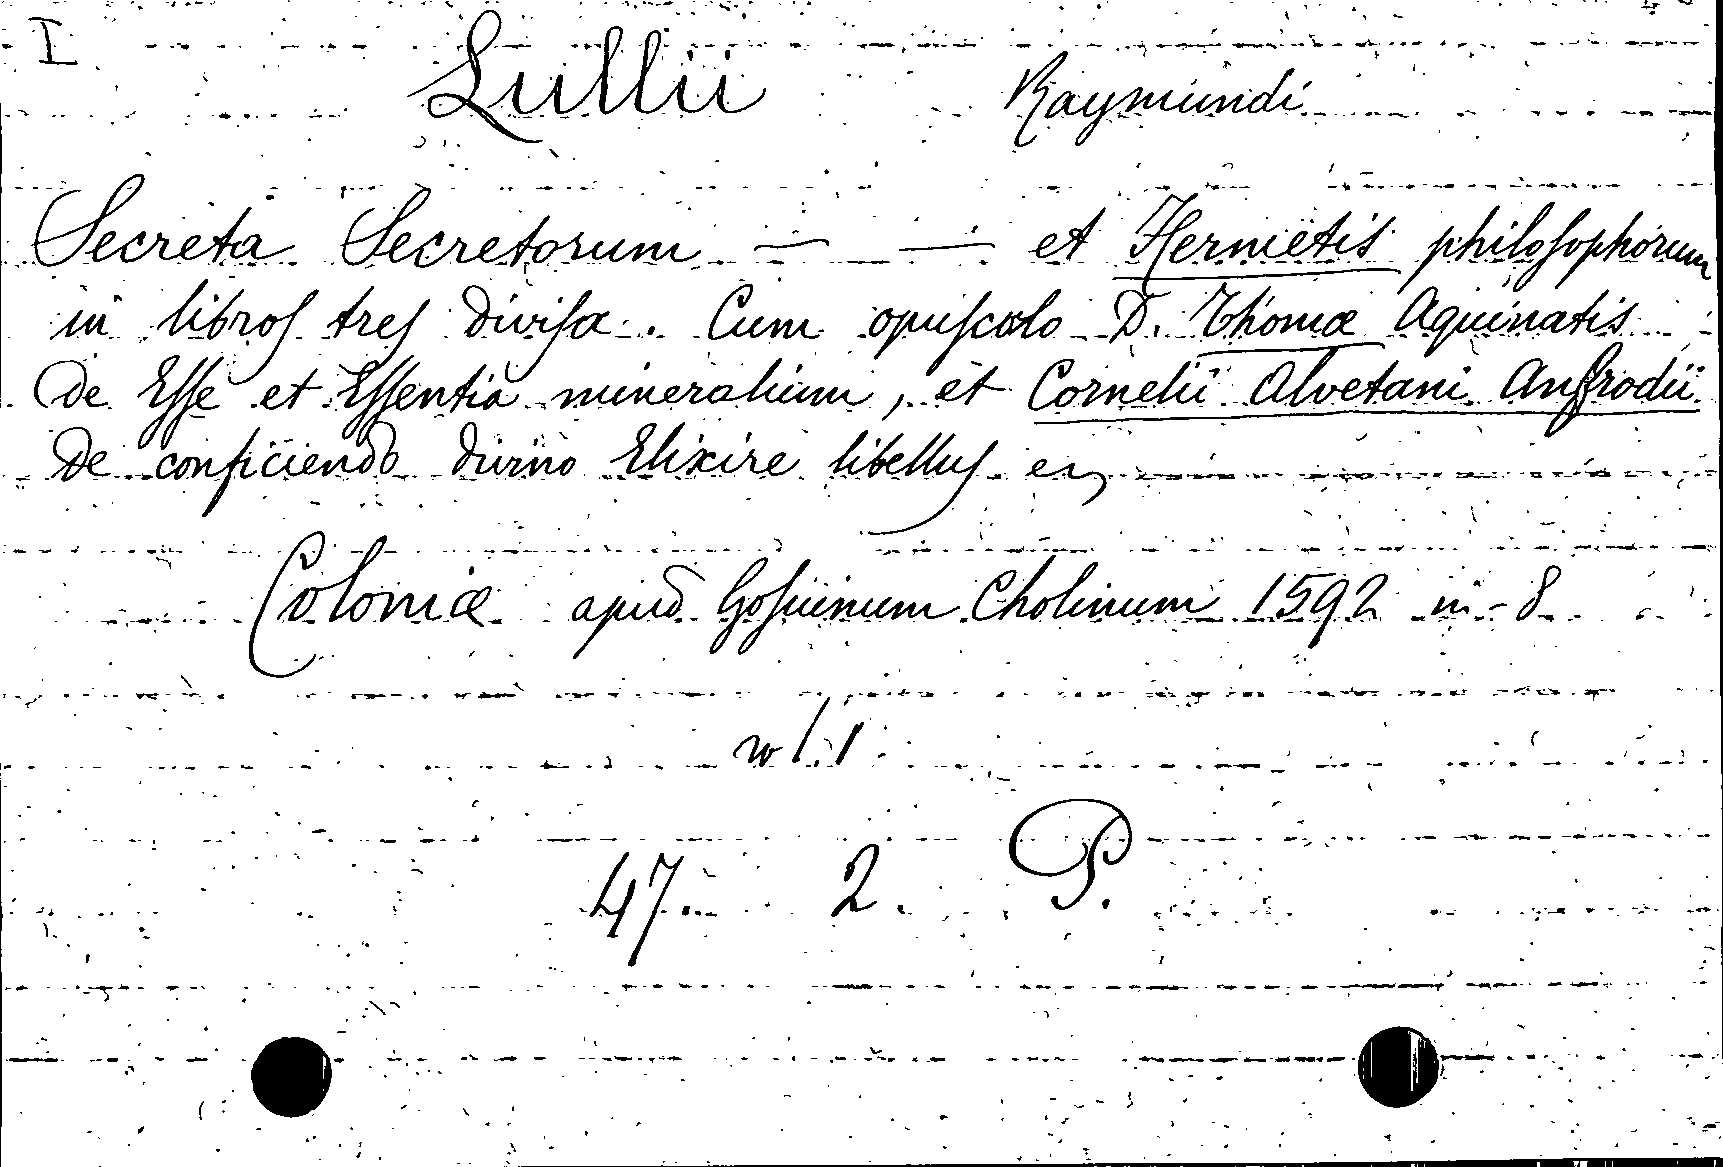 I
Lullii Raymundi
Secreta Secretorum — — et Hermetis philosophorum
in libros tres divisa. Cum opusculo D. Thomæ Aquinatis
de Esse et Essentia mineralium, et Cornelii Alvetani Ansrodii
de conficiendo divino Elixire libellus
Coloniæ apud Gosuinum Cholinum 1592 in-8
w l. 1
47. 2. P.